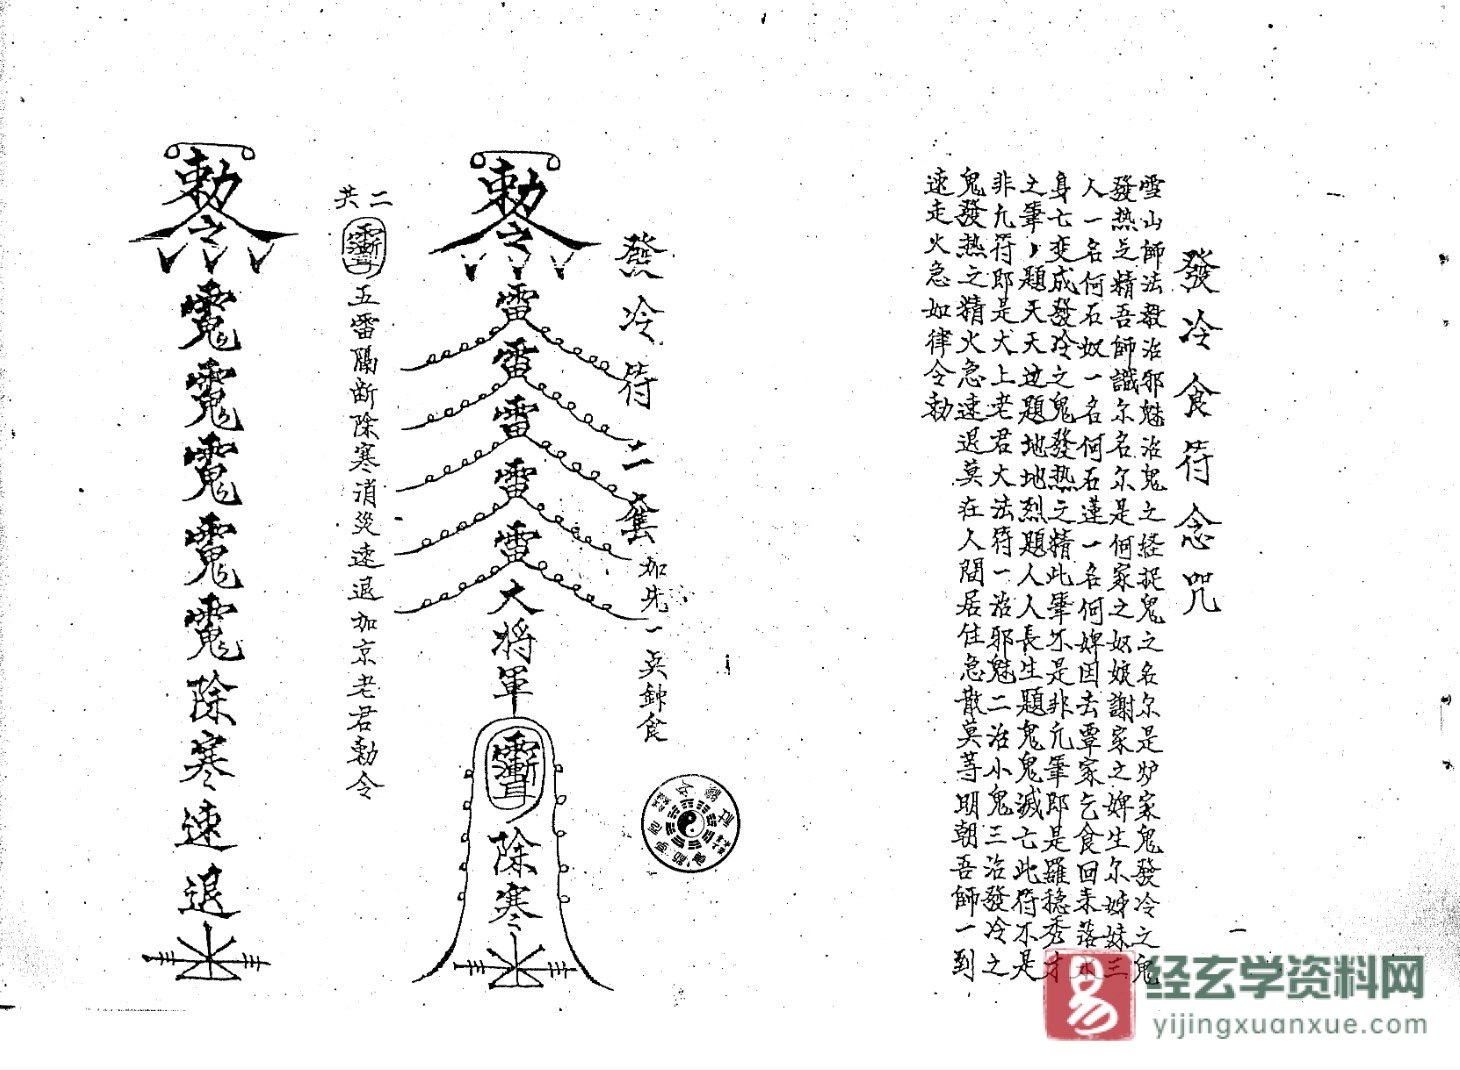 發冷食符念咒
雪山師法教治邪魅治鬼之経捉鬼之名尔是妒家鬼發冷之鬼
發热之精吾師識尔名尔是何家之奴娘謝家之婢生尔姊妹三
人一名何石奴一名何石蓮一名何婢因去覃家乞食回来落
身七变成發冷之鬼發热之精此筆不是非凢筆即是羅穏秀才
之筆，題天天边題地地烈題人人長生題鬼鬼滅亡此符不是
非凢符即是犬上老君大法符一治邪魅二治小鬼三治發冷之
鬼發热之精火急速退莫在人間居住急散莫等明朝吾師一到
速走火急如律令勅
發冷符二套
加先一点鉢食
勅令雷雷雷雷雷大将軍除寒
共二
五雷隔断除寒消災速退加京老君勅令
勅令
除寒速退
经玄学资料网
yijingxuanxue.com